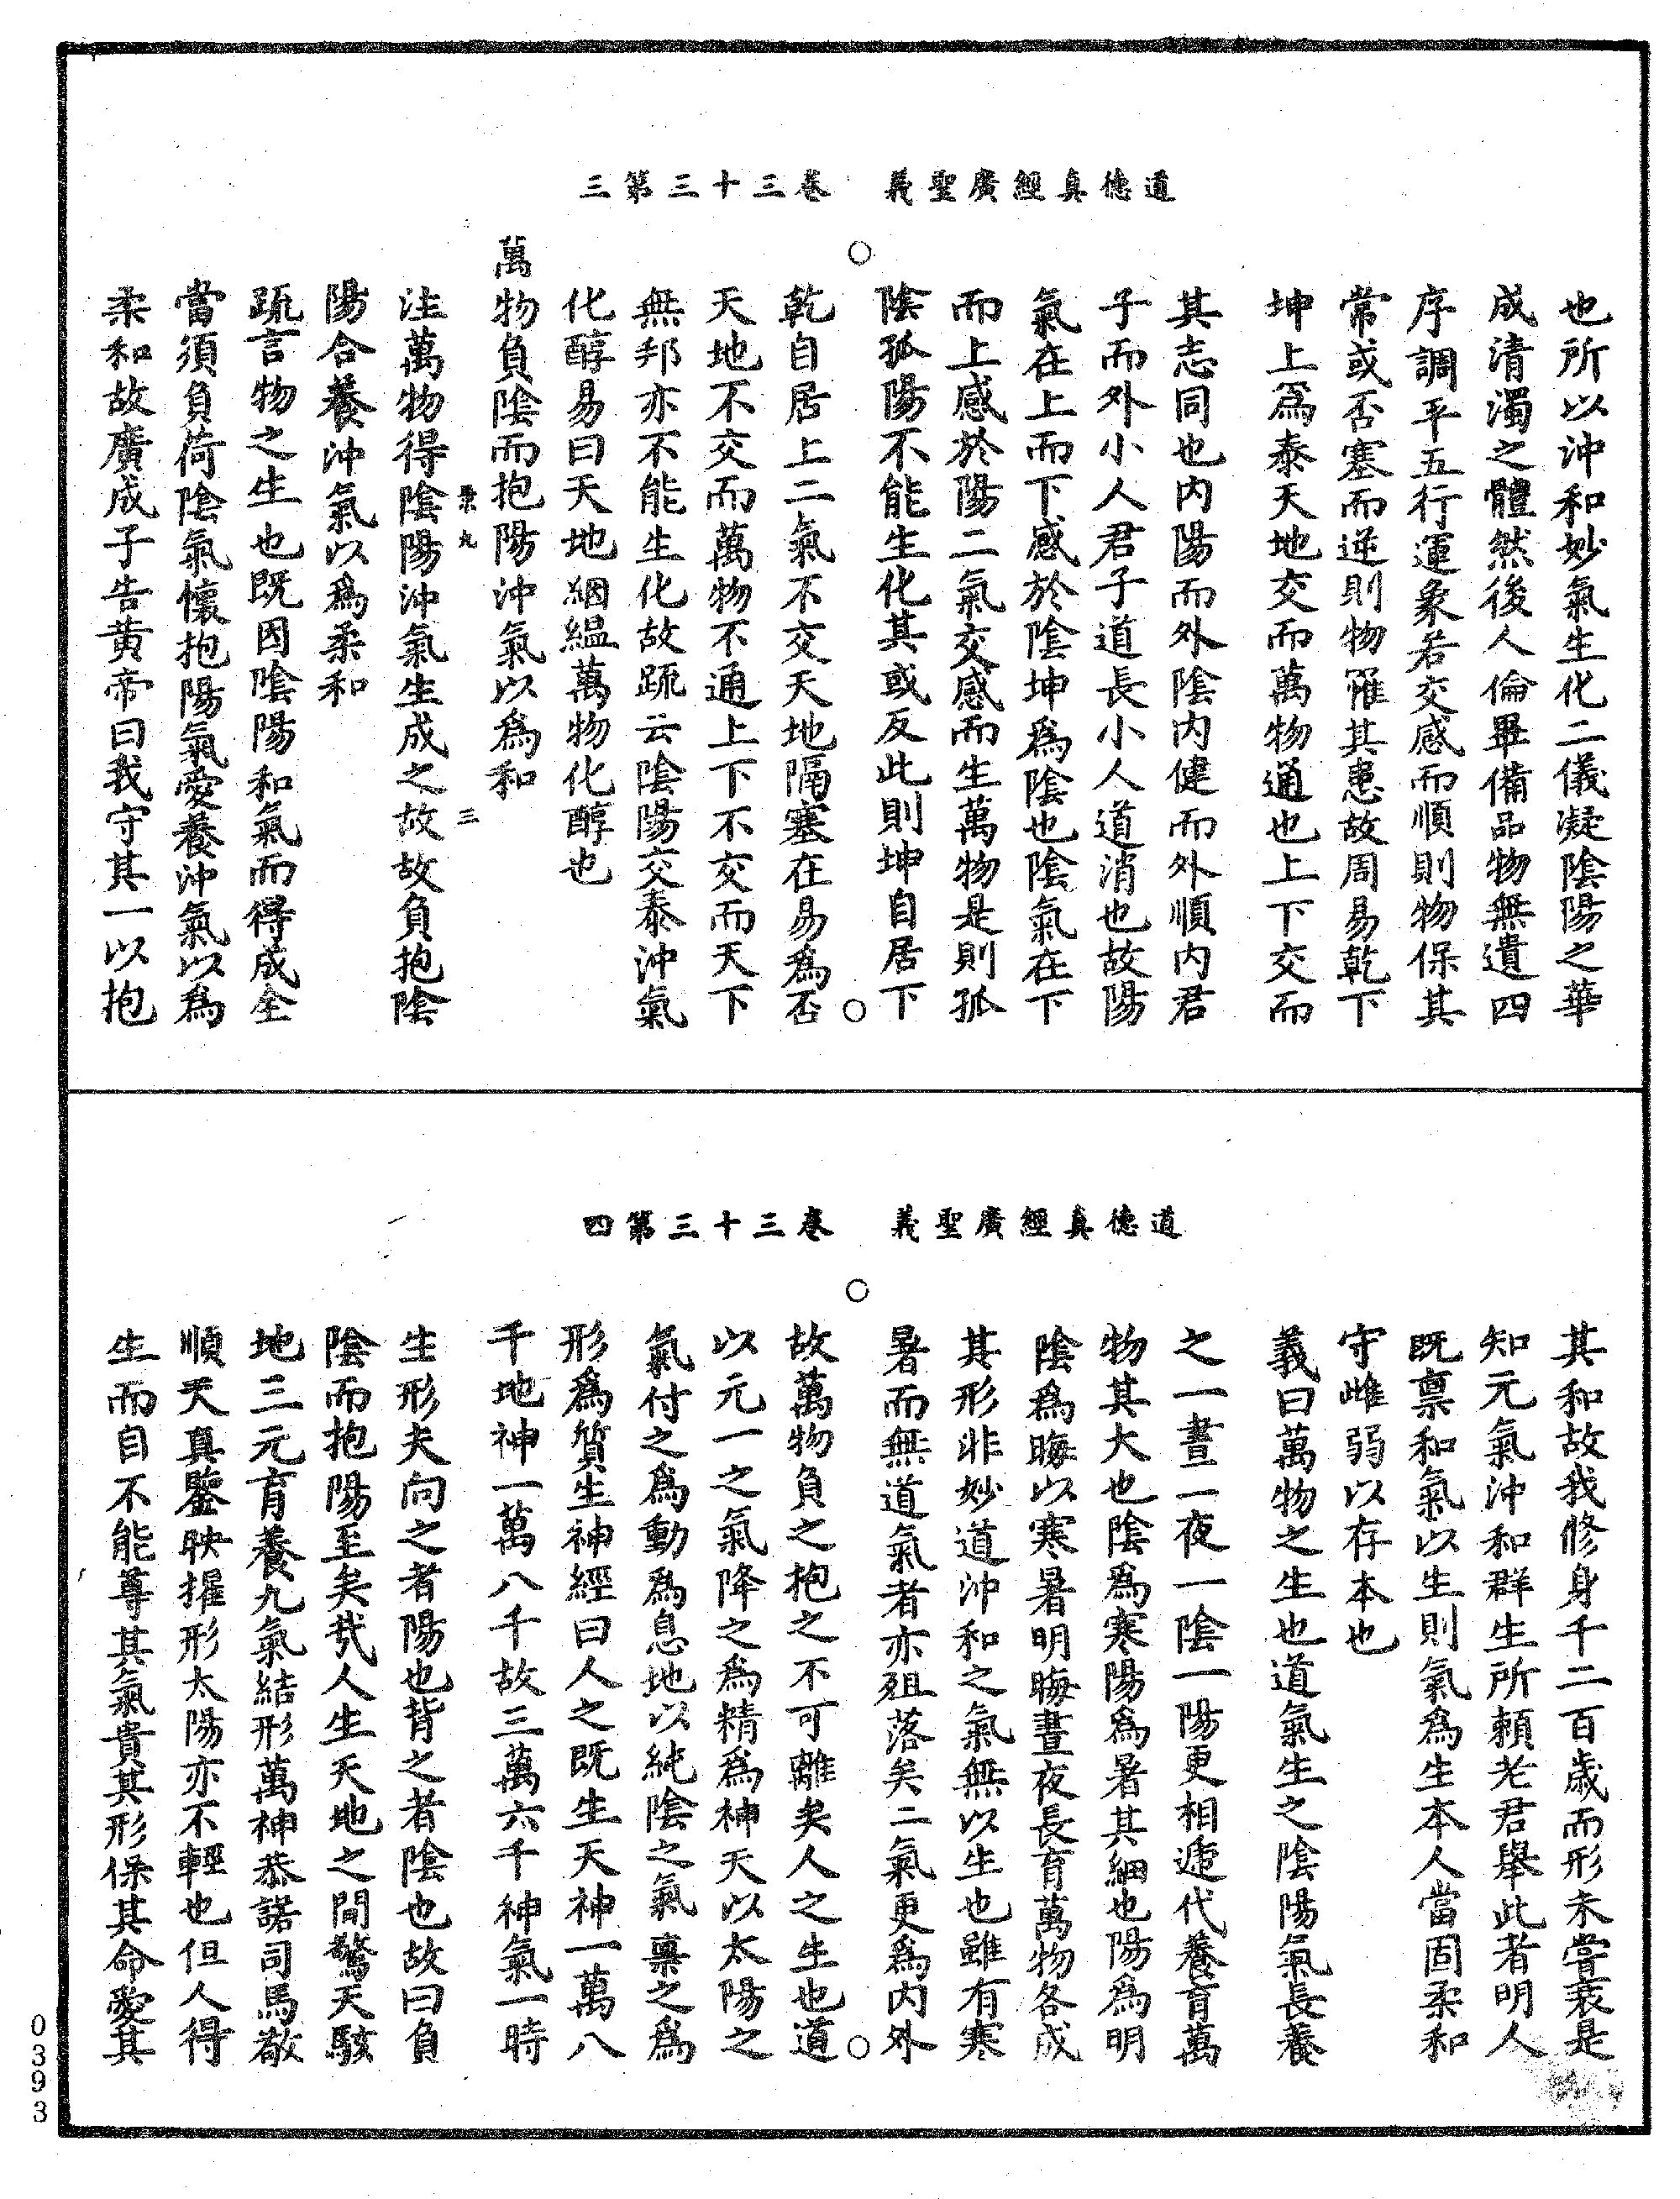 道德真經廣聖義　卷三十三第三
也所以沖和妙氣生化二儀凝陰陽之華
成清濁之體然後人倫畢備品物無遺四
序調平五行運象若交感而順則物保其
常或否塞而逆則物罹其患故周易乾下
坤上為泰天地交而萬物通也上下交而
其志同也內陽而外陰內健而外順內君
子而外小人君子道長小人道消也故陽
氣在上而下感於陰坤為陰也陰氣在下
而上感於陽二氣交感而生萬物是則孤
陰孤陽不能生化其或反此則坤自居下
乾自居上二氣不交天地隔塞在易為否
天地不交而萬物不通上下不交而天下
無邦亦不能生化故疏云陰陽交泰沖氣
化醇易曰天地絪縕萬物化醇也
萬物負陰而抱陽沖氣以為和
九　三
注萬物得陰陽沖氣生成之故故負抱陰
陽合養沖氣以為柔和
疏言物之生也既因陰陽和氣而得成全
當須負荷陰氣懷抱陽氣愛養沖氣以為
柔和故廣成子告黃帝曰我守其一以抱
道德真經廣聖義　卷三十三第四
其和故我修身千二百歲而形未嘗衰是
知元氣沖和群生所賴老君舉此者明人
既稟和氣以生則氣為生本人當固柔和
守雌弱以存本也
義曰萬物之生也道氣生之陰陽氣長養
之一晝一夜一陰一陽更相遞代養育萬
物其大也陰為寒陽為暑其細也陽為明
陰為晦以寒暑明晦晝夜長育萬物各成
其形非妙道沖和之氣無以生也雖有寒
暑而無道氣者亦殂落矣二氣更為內外
故萬物負之抱之不可離矣人之生也道
以元一之氣降之為精為神天以太陽之
氣付之為動為息地以純陰之氣稟之為
形為質生神經曰人之既生天神一萬八
千地神一萬八千故三萬六千神氣一時
生形夫向之者陽也背之者陰也故曰負
陰而抱陽至矣哉人生天地之間驚天駭
地三元育養九氣結形萬神恭諾司馬敬
順天真鑒映擢形太陽亦不輕也但人得
生而自不能尊其氣貴其形保其命愛其
0393